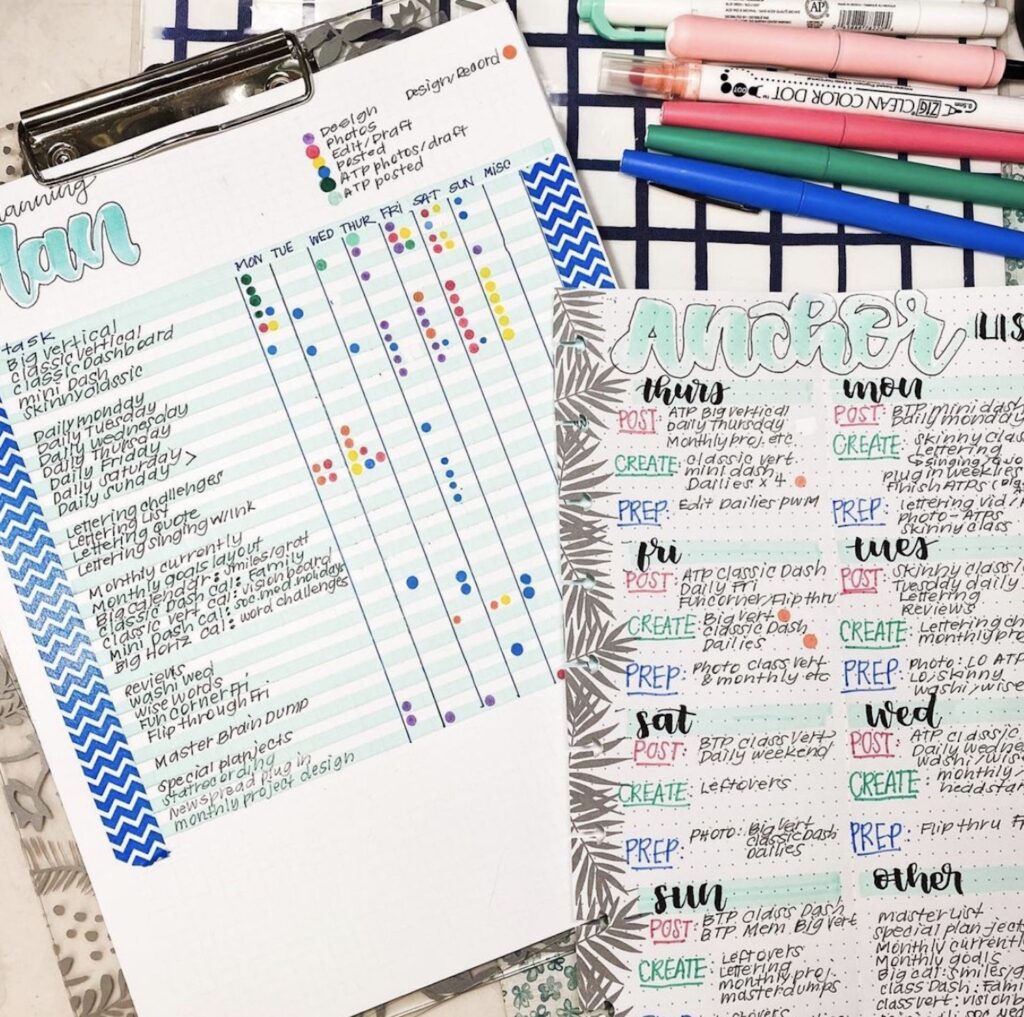 Design/Record
Design
Photos
Edit/Draft
Posted
ATP photos/draft
ATP posted
Planning
Plan
MON TUE WED THUR FRI SAT SUN MISC
task
Big vertical
classic vertical
classic Dashboard
mini Dash
skinnyclassic
Daily monday
Daily Tuesday
Daily Wednesday
Daily Thursday
Daily Friday
Daily Saturday >
Daily Sunday
Lettering challenges
Lettering List
Lettering quote
Lettering singing w/Ink
Monthly currently
Monthly goals layout
Big calendar: smiles/grat
Classic Dash cal: Family
Classic vert cal: vision board
Mini Dash cal: soc mod holidays
Big Horiz cal: word challenges
Reviews
washi wed
wise words
Fun corner Fri
Flip through Fri
Master Brain Dump
special planjects
statrecording
Newspread plug in
monthly project design
AP
ZIG CLEAN COLOR DOT
DOT
0.5mm
ANCHOR LIS
thurs
POST: ATP Big vertical
Daily Thursday
Monthly proj. etc
CREATE: Classic vert.
mini dash
Dailies x 4
PREP: Edit Dailies PWM
fri
POST: ATP Classic Dash
Daily Fri
Funcorner/Flip thru
CREATE: Big vert
classic Dash
Dailies
PREP: Photo class vert
& monthly etc
sat
POST: BTP class vert
Daily weekend
CREATE: Leftovers
PREP: PHOTO: Big vert
classic Dash
Dailies
sun
POST: BTP classis Dash
BTP Mem Big vert
CREATE: Leftovers
Lettering
monthly proj.
masterdumps
mon
POST: BTP mini dash
Daily monday
CREATE: skinny clas
Lettering
plug in weeklies
Finish ATPs
PREP: lettering vid /
photo-ATPS
skinny class
tues
POST: skinny class
Tuesday daily
Lettering
Reviews
CREATE: Lettering ch
monthly pro
PREP: Photo: LO ATP
LO/skinny
washi/wise
wed
POST: ATP classic
Daily Wedne
washi/wis
CREATE: monthly/
headstar
PREP: Flip thru F
other
Master List
special plan-ject
Monthly current
Monthly goals
Big cal: smiles/g
class Dash: Fami
class vert: vision b